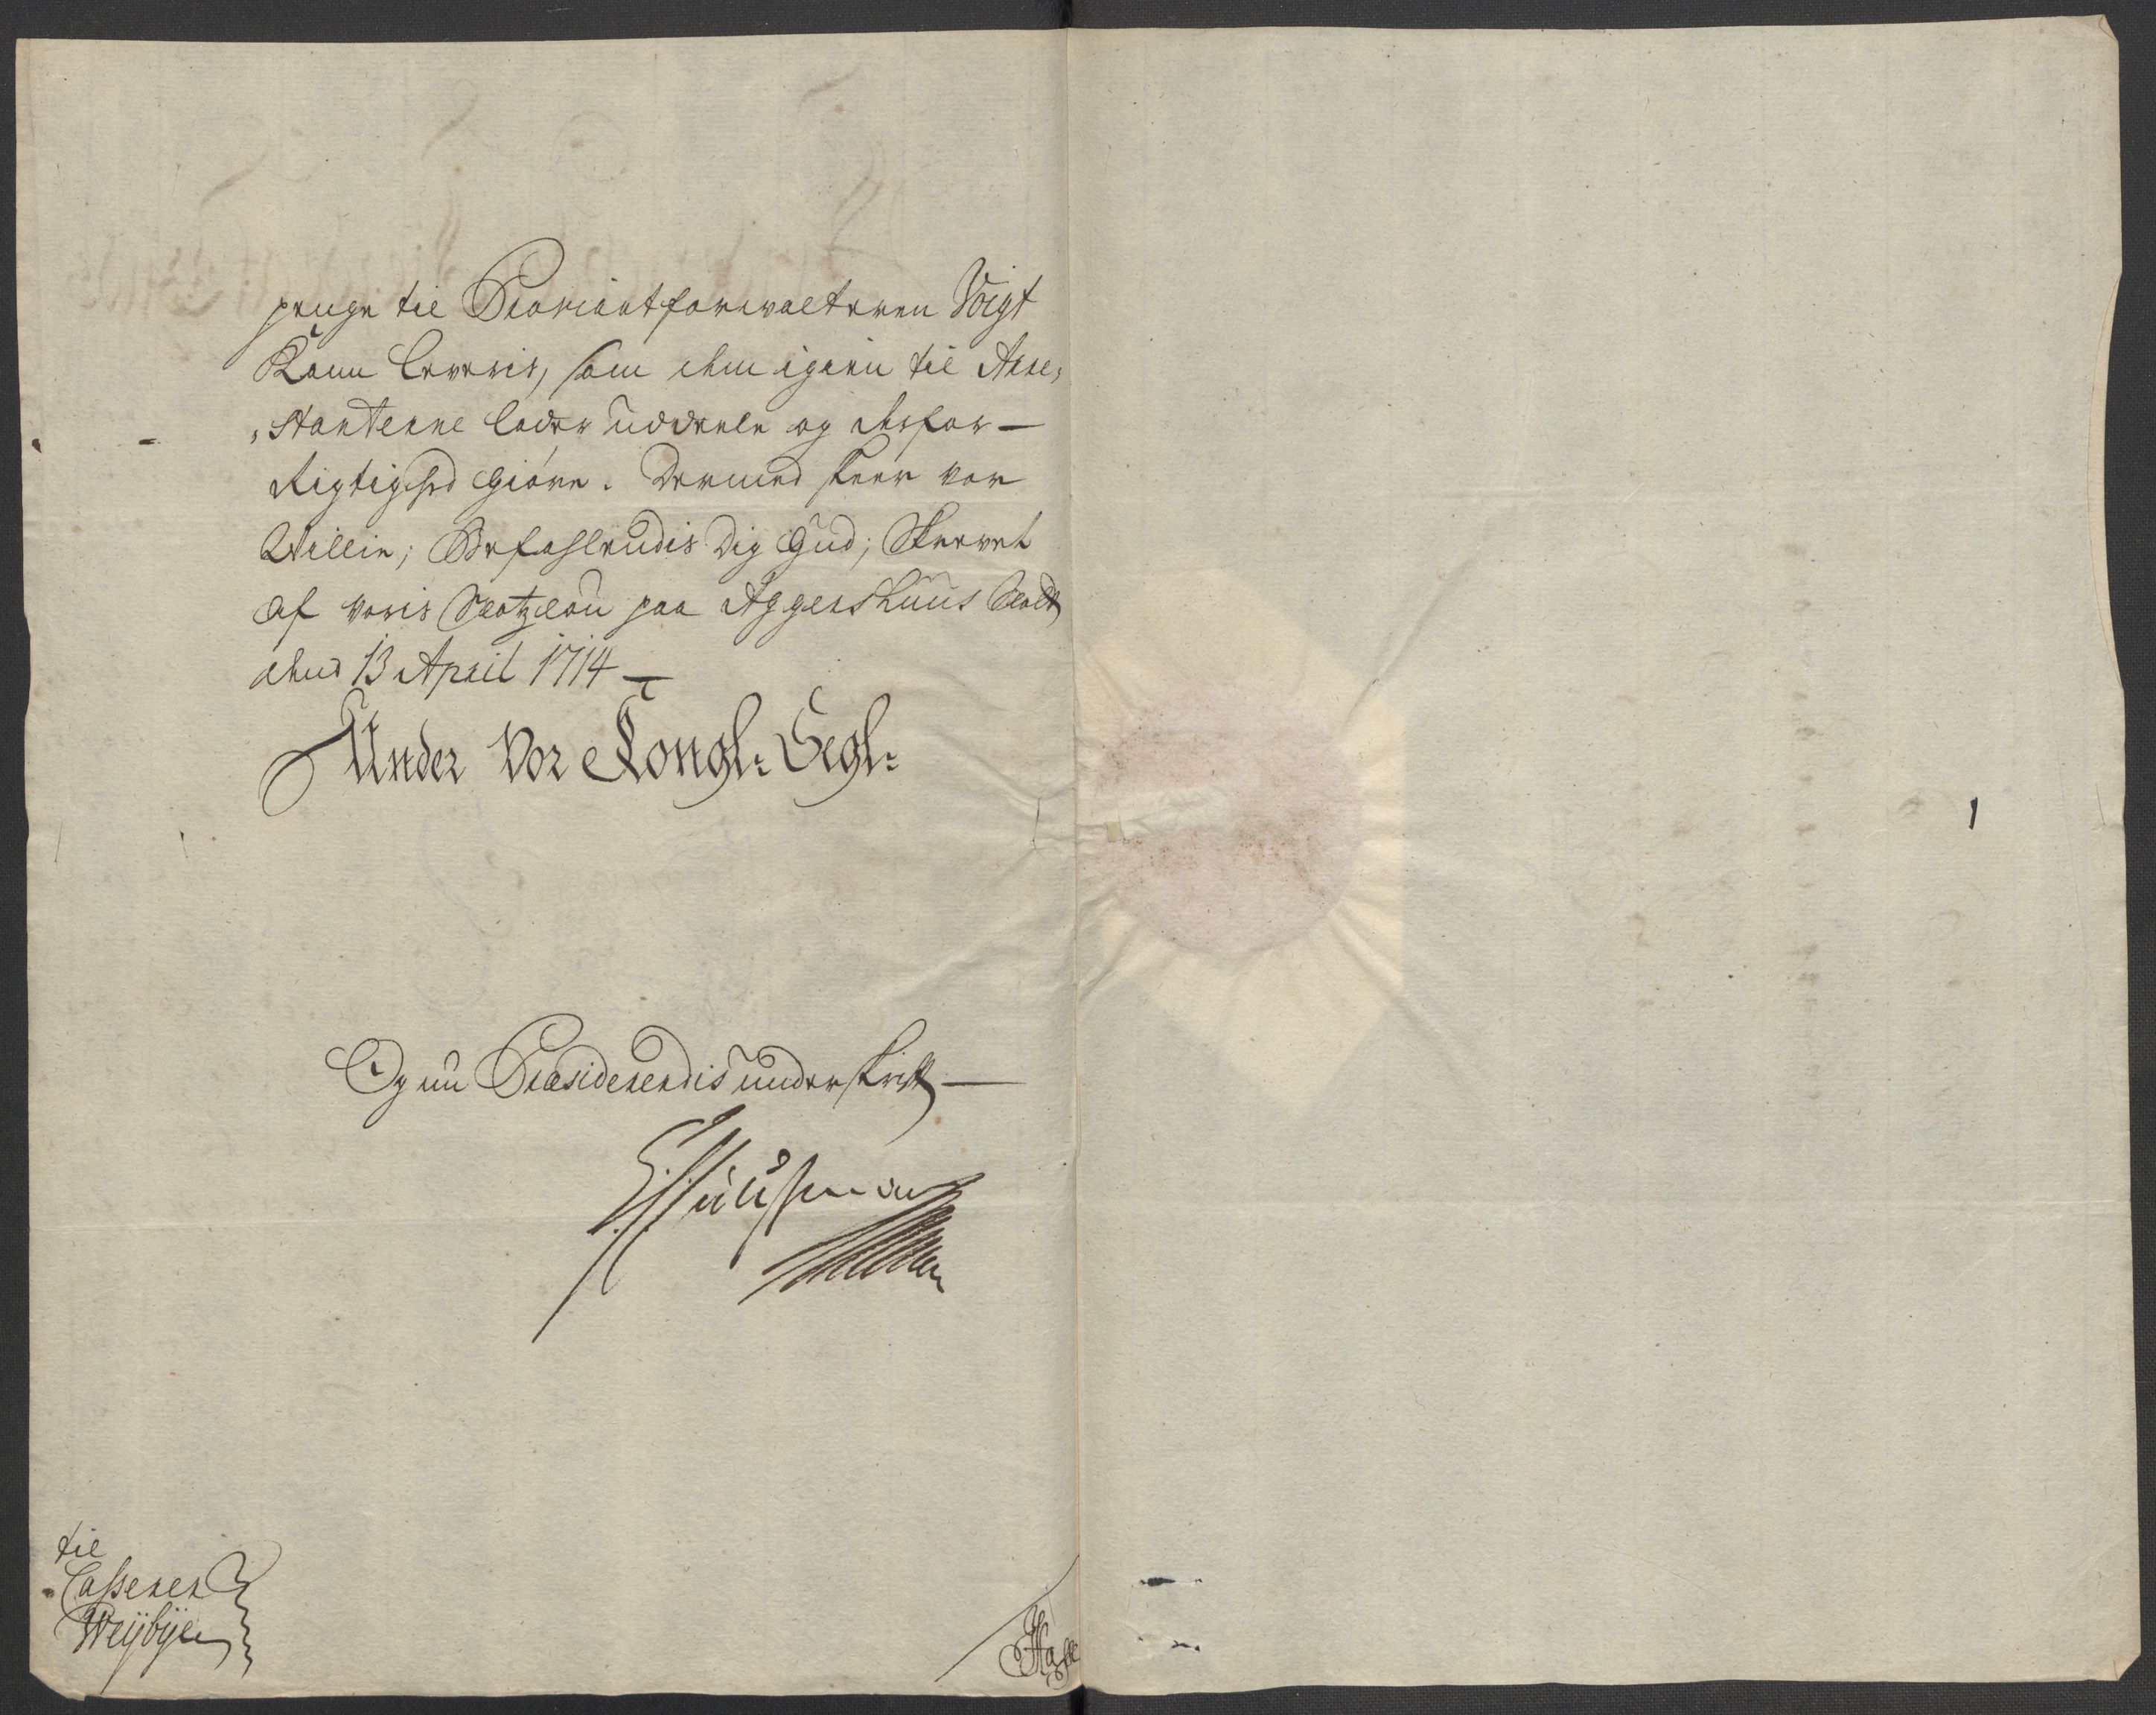 penge til Proviantforvalteren Voigt
Kand leveris, som dem igien til Arre,
,stanterne lader uddeele og derfor -
Rigtighed giøre. Dermed skeer vor
Willie; Befahlendis Dig Gud; Skrevet
af voris Slotzlou paa Aggershuus Slott
dend 13 April 1714 -
Under Vor Kongl: Segl:
Og nu Præsiderendis underskrifft -
Hausman
til
Casserer
Weÿbÿe